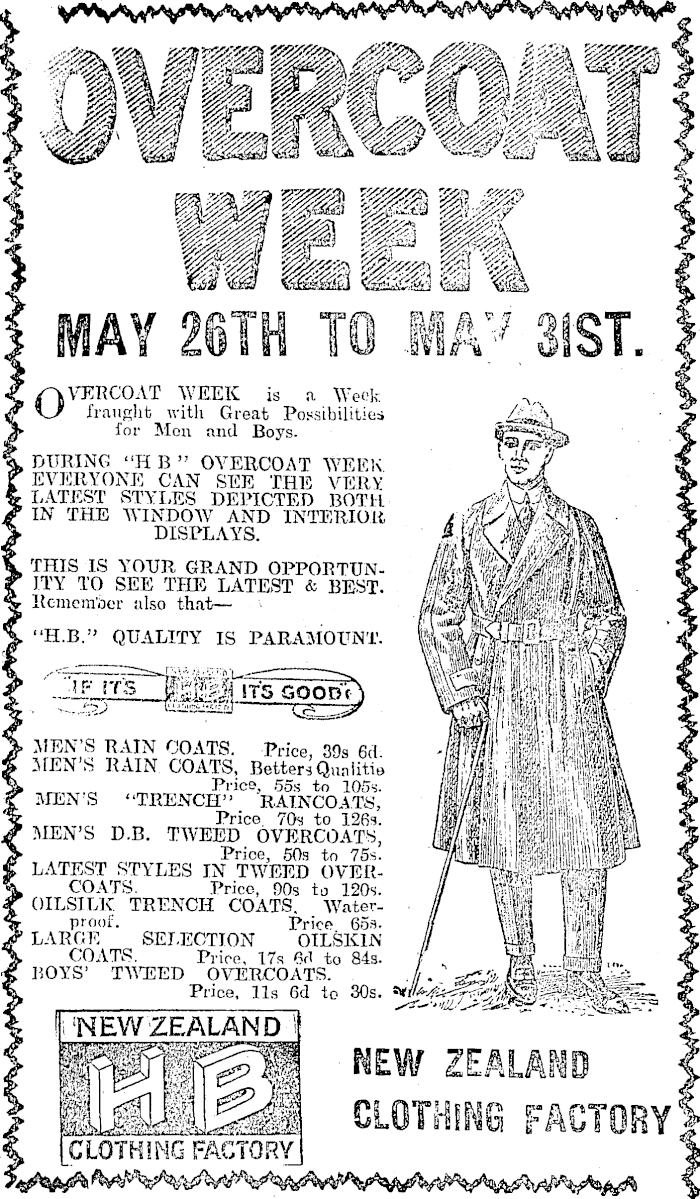 OVERCOAT
WEEK
MAY 26TH TO MAY 31ST.
OVERCOAT WEEK is a Week
fraught with Great Possibilities
for Men and Boys.
DURING "H B" OVERCOAT WEEK
EVERYONE CAN SEE THE VERY
LATEST STYLES DEPICTED BOTH
IN THE WINDOW AND INTERIOR
DISPLAYS.
THIS IS YOUR GRAND OPPORTUN-
ITY TO SEE THE LATEST & BEST.
Remember also that—
"H.B." QUALITY IS PARAMOUNT.
IF ITS HB ITS GOOD
MEN'S RAIN COATS. Price, 39s 6d.
MEN'S RAIN COATS, Betters Qualitie
Price, 55s to 105s.
MEN'S "TRENCH" RAINCOATS,
Price, 70s to 126s.
MEN'S D.B. TWEED OVERCOATS,
Price, 50s to 75s.
LATEST STYLES IN TWEED OVER-
COATS. Price, 90s to 120s.
OILSILK TRENCH COATS. Water-
proof. Price, 65s.
LARGE SELECTION OILSKIN
COATS. Price, 17s 6d to 84s.
BOYS' TWEED OVERCOATS.
Price, 11s 6d to 30s.
NEW ZEALAND
HB
CLOTHING FACTORY
NEW ZEALAND
CLOTHING FACTORY